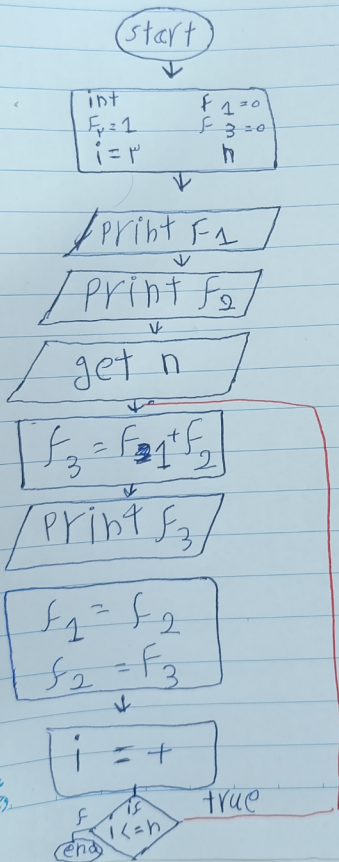 start
int F1=0
F۲=1 F3=0
i=۳ n
print F1
print F2
get n
F3 = F1+F2
print F3
F1 = F2
F2 = F3
i = +
if
f i<=n true
end